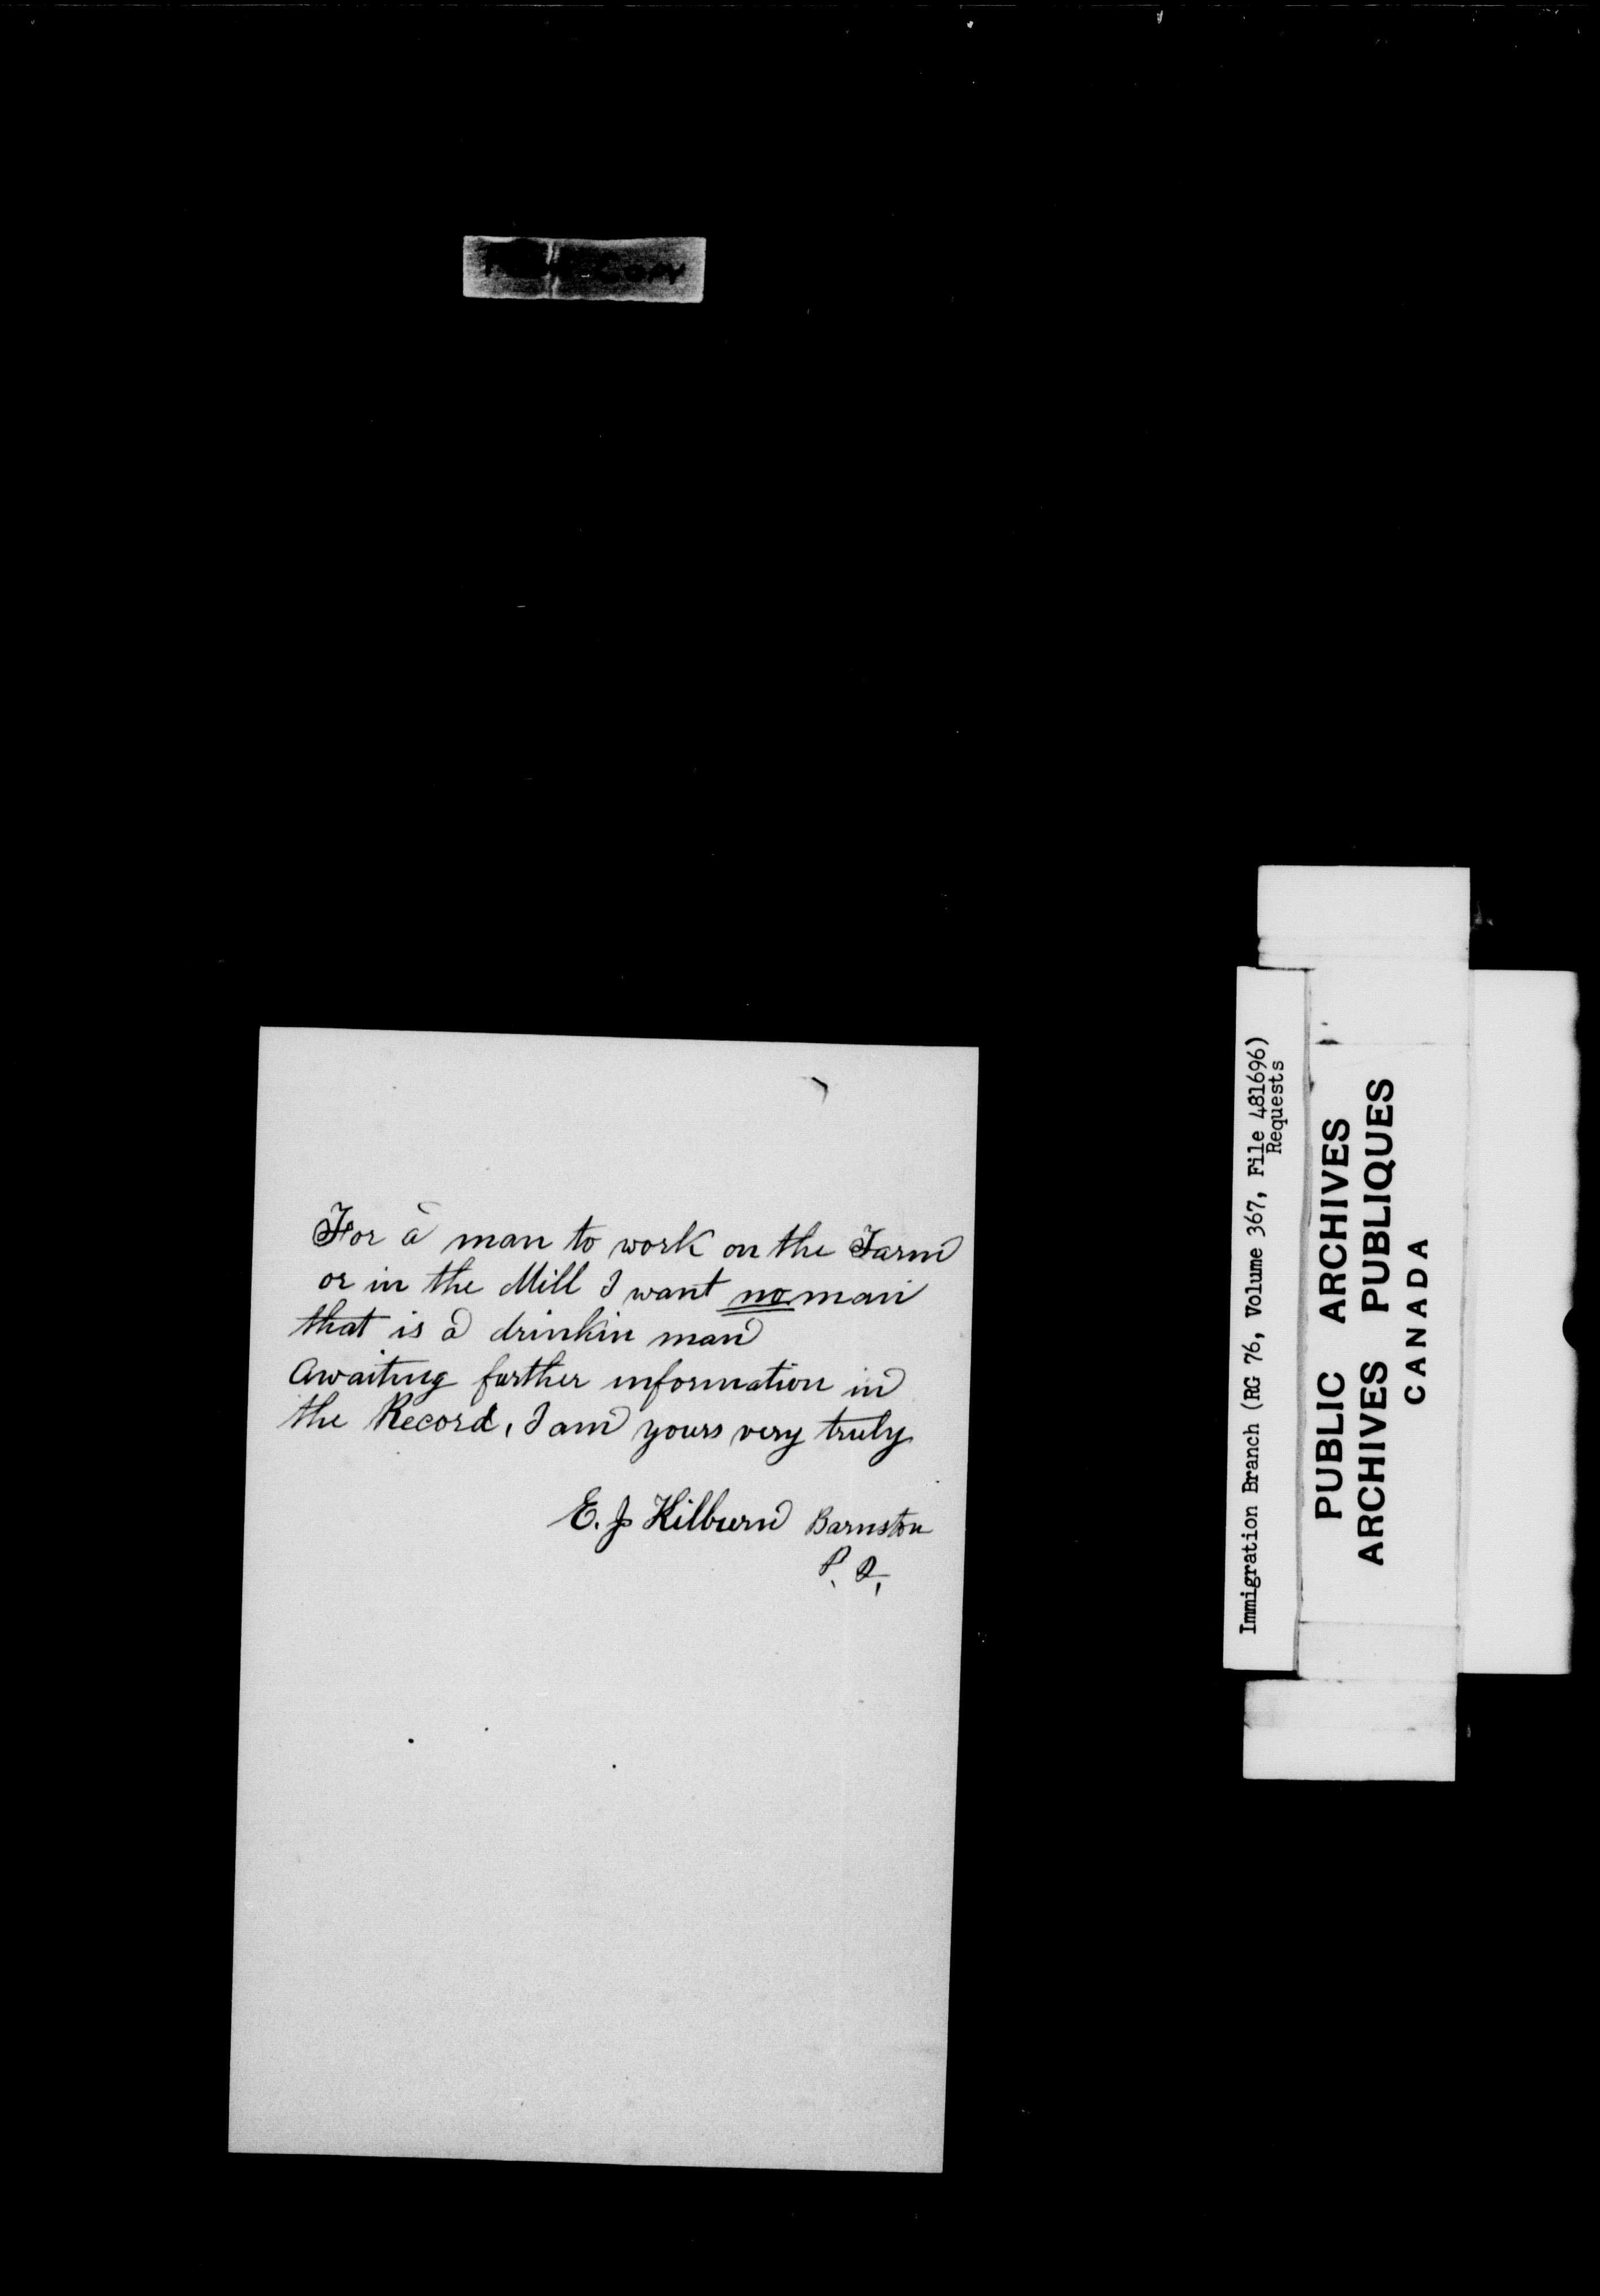 Copy
For a man to work on the Farm
or in the Mill I want no man
that is a drinkin man
Awaiting further information in
the Record, I am yours very truly
E. J Kilburn Barnston
P. Q.
Immigration Branch (RG 76, Volume 367, File 481696)
Requests
PUBLIC ARCHIVES
ARCHIVES PUBLIQUES
CANADA